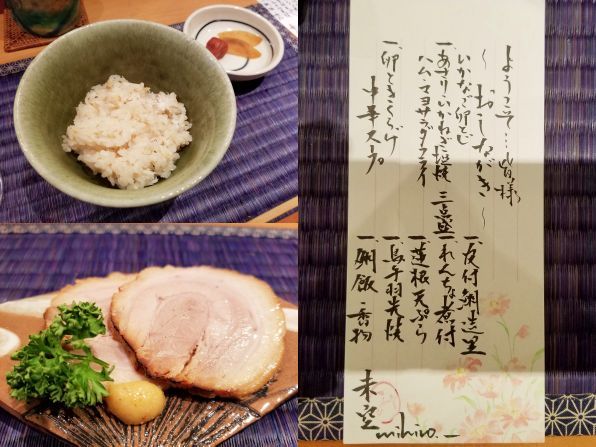 ようこそ…皆様
～おしながき～
いかなご卵とじ
一、あさり、いかねぎ塩焼 三点盛
ハム、マヨサラダフライ
一、卵ときくらげ
中華スープ
一、皮付鯛造里
煮付
一、蓮根天ぷら
一、鳥手羽先焼
一、鯛飯 香物
未空
mihiro.